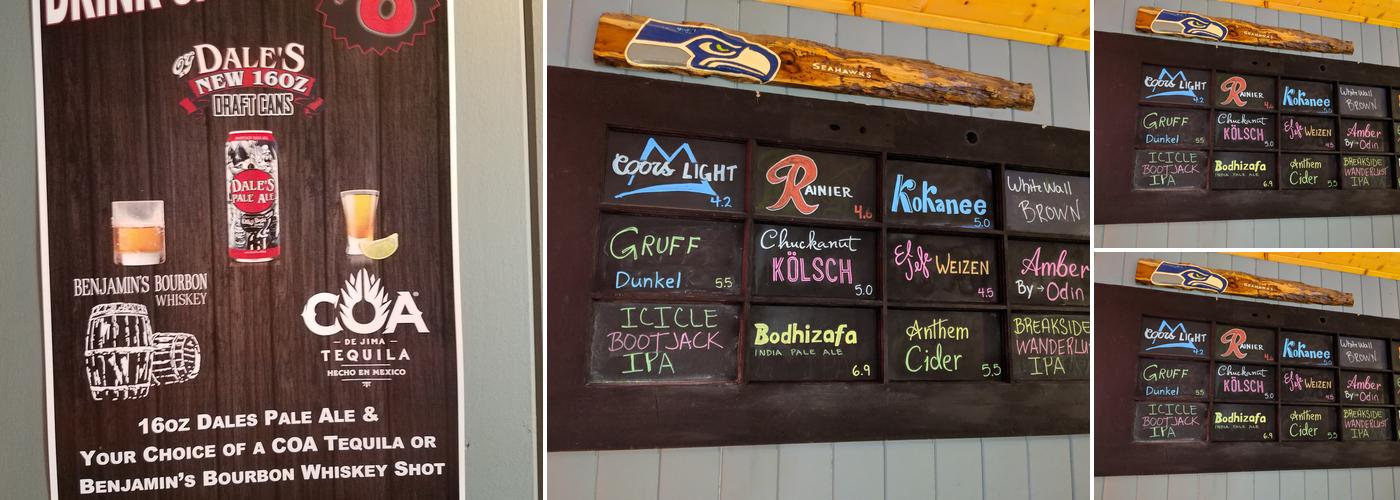 DRINK
8
Oγ DALE'S
NEW 16OZ
DRAFT CANS
DALE'S
PALE ALE
BENJAMIN'S BOURBON
WHISKEY
COA
DE JIMA
TEQUILA
HECHO EN MEXICO
16OZ DALES PALE ALE &
YOUR CHOICE OF A COA TEQUILA OR
BENJAMIN'S BOURBON WHISKEY SHOT
SEAHAWKS
Coors LIGHT
4.2
RAINIER
4.6
Kokanee
5.0
White Wall
BROWN
GRUFF
Dunkel 5.5
Chuckanut
KÖLSCH
5.0
Efeste WEIZEN
4.5
Amber
By → Odin
ICICLE
BOOTJACK
IPA
Bodhizafa
INDIA PALE ALE
6.9
Anthem
Cider 5.5
BREAKSIDE
WANDERLU
IPA
SEAHAWKS
Coors LIGHT
4.2
RAINIER
4.6
Kokanee
5.0
White Wall
BROWN
GRUFF
Dunkel 5.5
Chuckanut
KÖLSCH
5.0
WEIZEN
4.5
Amber
By → Odin
ICICLE
BOOTJACK
IPA
Bodhizafa
INDIA PALE ALE
6.9
Anthem
Cider 5.5
BREAKSIDE
WANDERLUST
IPA
SEAHAWKS
Coors LIGHT
4.2
RAINIER
4.6
Kokanee
5.0
White Wall
BROWN
GRUFF
Dunkel 5.5
Chuckanut
KÖLSCH
5.0
WEIZEN
4.5
Amber
By → Odin
ICICLE
BOOTJACK
IPA
Bodhizafa
INDIA PALE ALE
6.9
Anthem
Cider 5.5
BREAKSIDE
WANDERLUST
IPA